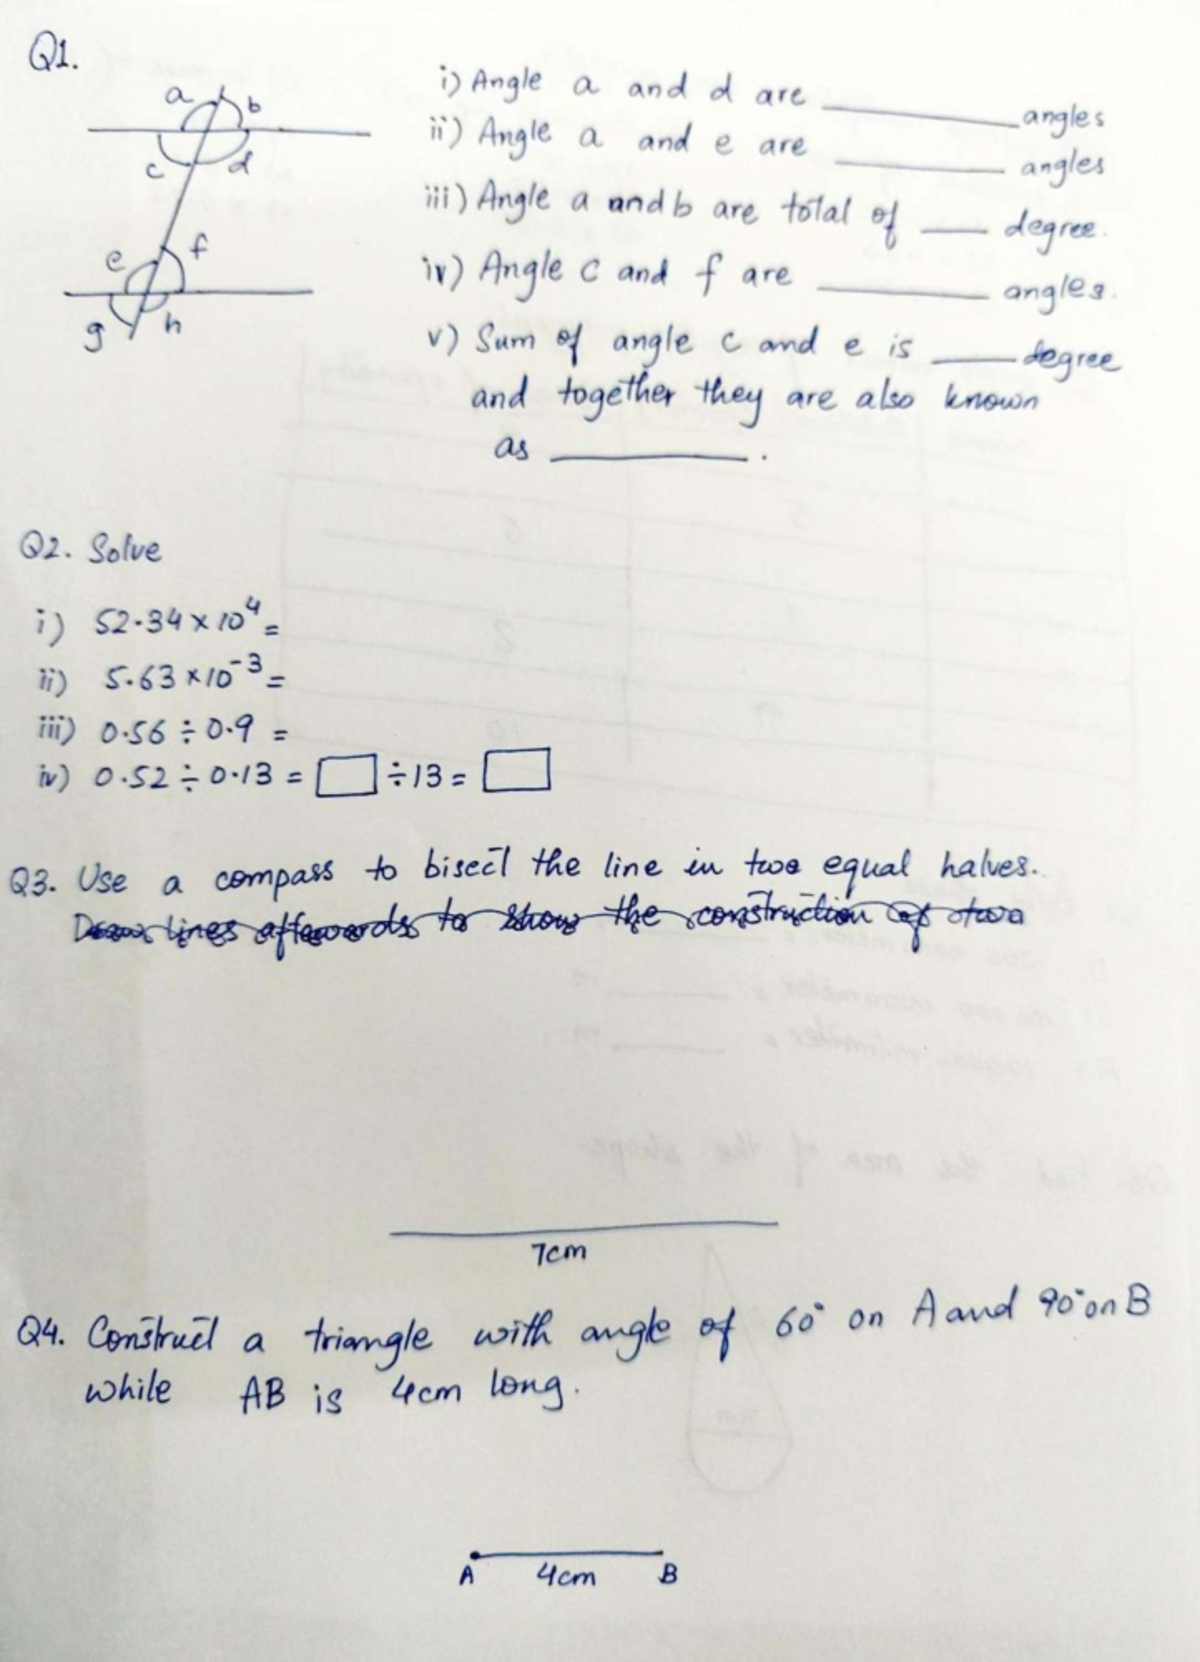 Q1.
a b
c d
e f
g h
i) Angle a and d are ________ angles
ii) Angle a and e are ________ angles
iii) Angle a and b are total of ___ degree.
iv) Angle c and f are ________ angles.
v) Sum of angle c and e is ____ degree
and together they are also known
as ________.
Q2. Solve
i) 52.34 × 10⁴ =
ii) 5.63 × 10⁻³ =
iii) 0.56 ÷ 0.9 =
iv) 0.52 ÷ 0.13 = □ ÷ 13 = □
Q3. Use a compass to bisect the line in two equal halves.
Draw lines afterwards to show the construction of two
7cm
Q4. Construct a triangle with angle of 60° on A and 90° on B
while AB is 4cm long.
A 4cm B